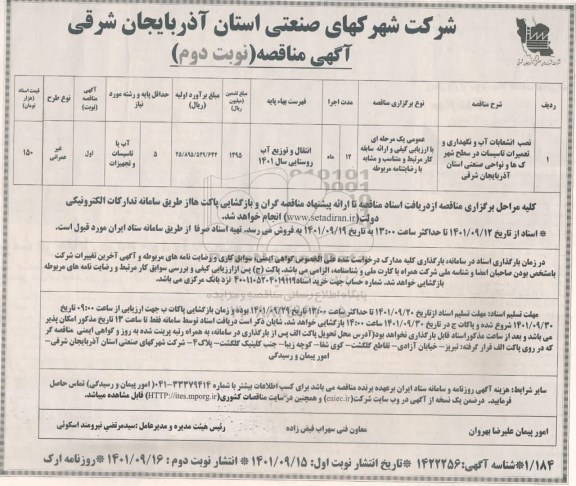 شرکت شهرکهای صنعتی استان آذربایجان شرقی
آگهی مناقصه(نوبت دوم)
ردیف
شرح مناقصه
نوع برگزاری مناقصه
مدت اجرا
فهرست بهاء پایه
مبلغ تضمین (میلیون ریال)
مبلغ برآورد اولیه (ریال)
حداقل پایه و رشته مورد نیاز
آگهی مناقصه (نوبت)
نوع طرح
قیمت اسناد (هزار تومان)
۱
نصب انشعابات آب و نگهداری و تعمیرات تاسیسات در سطح شهرک ها و نواحی صنعتی استان آذربایجان شرقی
عمومی یک مرحله ای با ارزیابی کیفی و ارائه سابقه کار مرتبط و متناسب و مشابه با رضایتنامه مربوطه
۱۲ ماه
انتقال و توزیع آب روستایی سال ۱۴۰۱
۱۳۹۵
۲۵/۸۹۵/۵۳۹/۶۴۳
۵
آب یا تاسیسات و تجهیزات
اول
غیر عمرانی
۱۵۰
کلیه مراحل برگزاری مناقصه ازدریافت اسناد مناقصه تا ارائه پیشنهاد مناقصه گران و بازگشایی پاکت هااز طریق سامانه تدارکات الکترونیکی
دولت(www.setadiran.ir) انجام خواهد شد.
* اسناد از تاریخ ۱۴۰۱/۰۹/۱۲ تا حداکثر ساعت ۱۳:۰۰ به تاریخ ۱۴۰۱/۰۹/۱۹ به فروش می رسد. تهیه اسناد صرفا از طریق سامانه ستاد ایران مورد قبول است.
در زمان بارگذاری اسناد در سامانه، بارگذاری کلیه مدارک درخواست شده علی الخصوص گواهی ایمنی، سوابق کاری و رضایت نامه های مربوطه و آگهی آخرین تغییرات شرکت
بامشخص بودن صاحبان امضا و شناسه ملی شرکت همراه با کارت ملی و شناسنامه، الزامی می باشد. پاکت (ج) پس ازارزیابی کیفی و بررسی سوابق کار مرتبط و رضایت نامه های مربوطه
بازگشایی خواهد شد. شماره حساب جهت خرید اسناد ۴۰۰۱۱۰۵۲۰۴۰۱۹۱۱۹ نزد بانک مرکزی می باشد.
مهلت تسلیم اسناد: مهلت تسلیم اسناد ازتاریخ ۱۴۰۱/۰۹/۲۰ تا حداکثر ساعت ۱۳:۰۰ تاریخ ۱۴۰۱/۰۹/۲۹ بوده و زمان بازگشایی پاکات ب جهت ارزیابی از ساعت ۰۹:۰۰ تاریخ
۱۴۰۱/۰۹/۳۰ شروع شده و پاکات ج در تاریخ ۱۴۰۱/۰۹/۳۰ ساعت ۱۴:۰۰ بازگشایی خواهد شد. شایان ذکر است دریافت اسناد توسط سامانه فقط تا ساعت ۱۳ تاریخ مذکور امکان پذیر
می باشد و بعد از ساعت مذکوراسناد قابل بارگذاری نخواهد بود(آدرس محل تحویل پاکت الف پس از بارگذاری در سامانه، به همراه رتبه پرینت شده به روز و گواهی ایمنی مناقصه گر
که در روی پاکت الف قرار گرفته: تبریز- خیابان آزادی- تقاطع گلگشت- کوی شفا- کوچه زیبا- جنب کلینیک گلگشت- پلاک۴- شرکت شهرکهای صنعتی استان آذربایجان شرقی-
امور پیمان و رسیدگی
سایر شرایط: هزینه آگهی روزنامه و سامانه ستاد ایران برعهده برنده مناقصه می باشد برای کسب اطلاعات بیشتر با شماره ۳۳۳۷۹۴۱۴-۰۴۱ (امور پیمان و رسیدگی) تماس حاصل
فرمایید. درضمن یک نسخه از آگهی در وب سایت شرکت(eaiec.ir) و همچنین در سایت مناقصات کشوری(HTTP://ites.mporg.ir) قابل مشاهده میباشد.
امور پیمان علیرضا بهروان
معاون فنی سهراب فیض زاده
رئیس هیئت مدیره و مدیرعامل:سیدمرتضی نیرومند اسکوئی
۱/۱۸۴*شناسه آگهی:۱۴۲۲۲۵۶ *تاریخ انتشار نوبت اول: ۱۴۰۱/۰۹/۱۵ * انتشار نوبت دوم : ۱۴۰۱/۰۹/۱۶ *روزنامه ارک